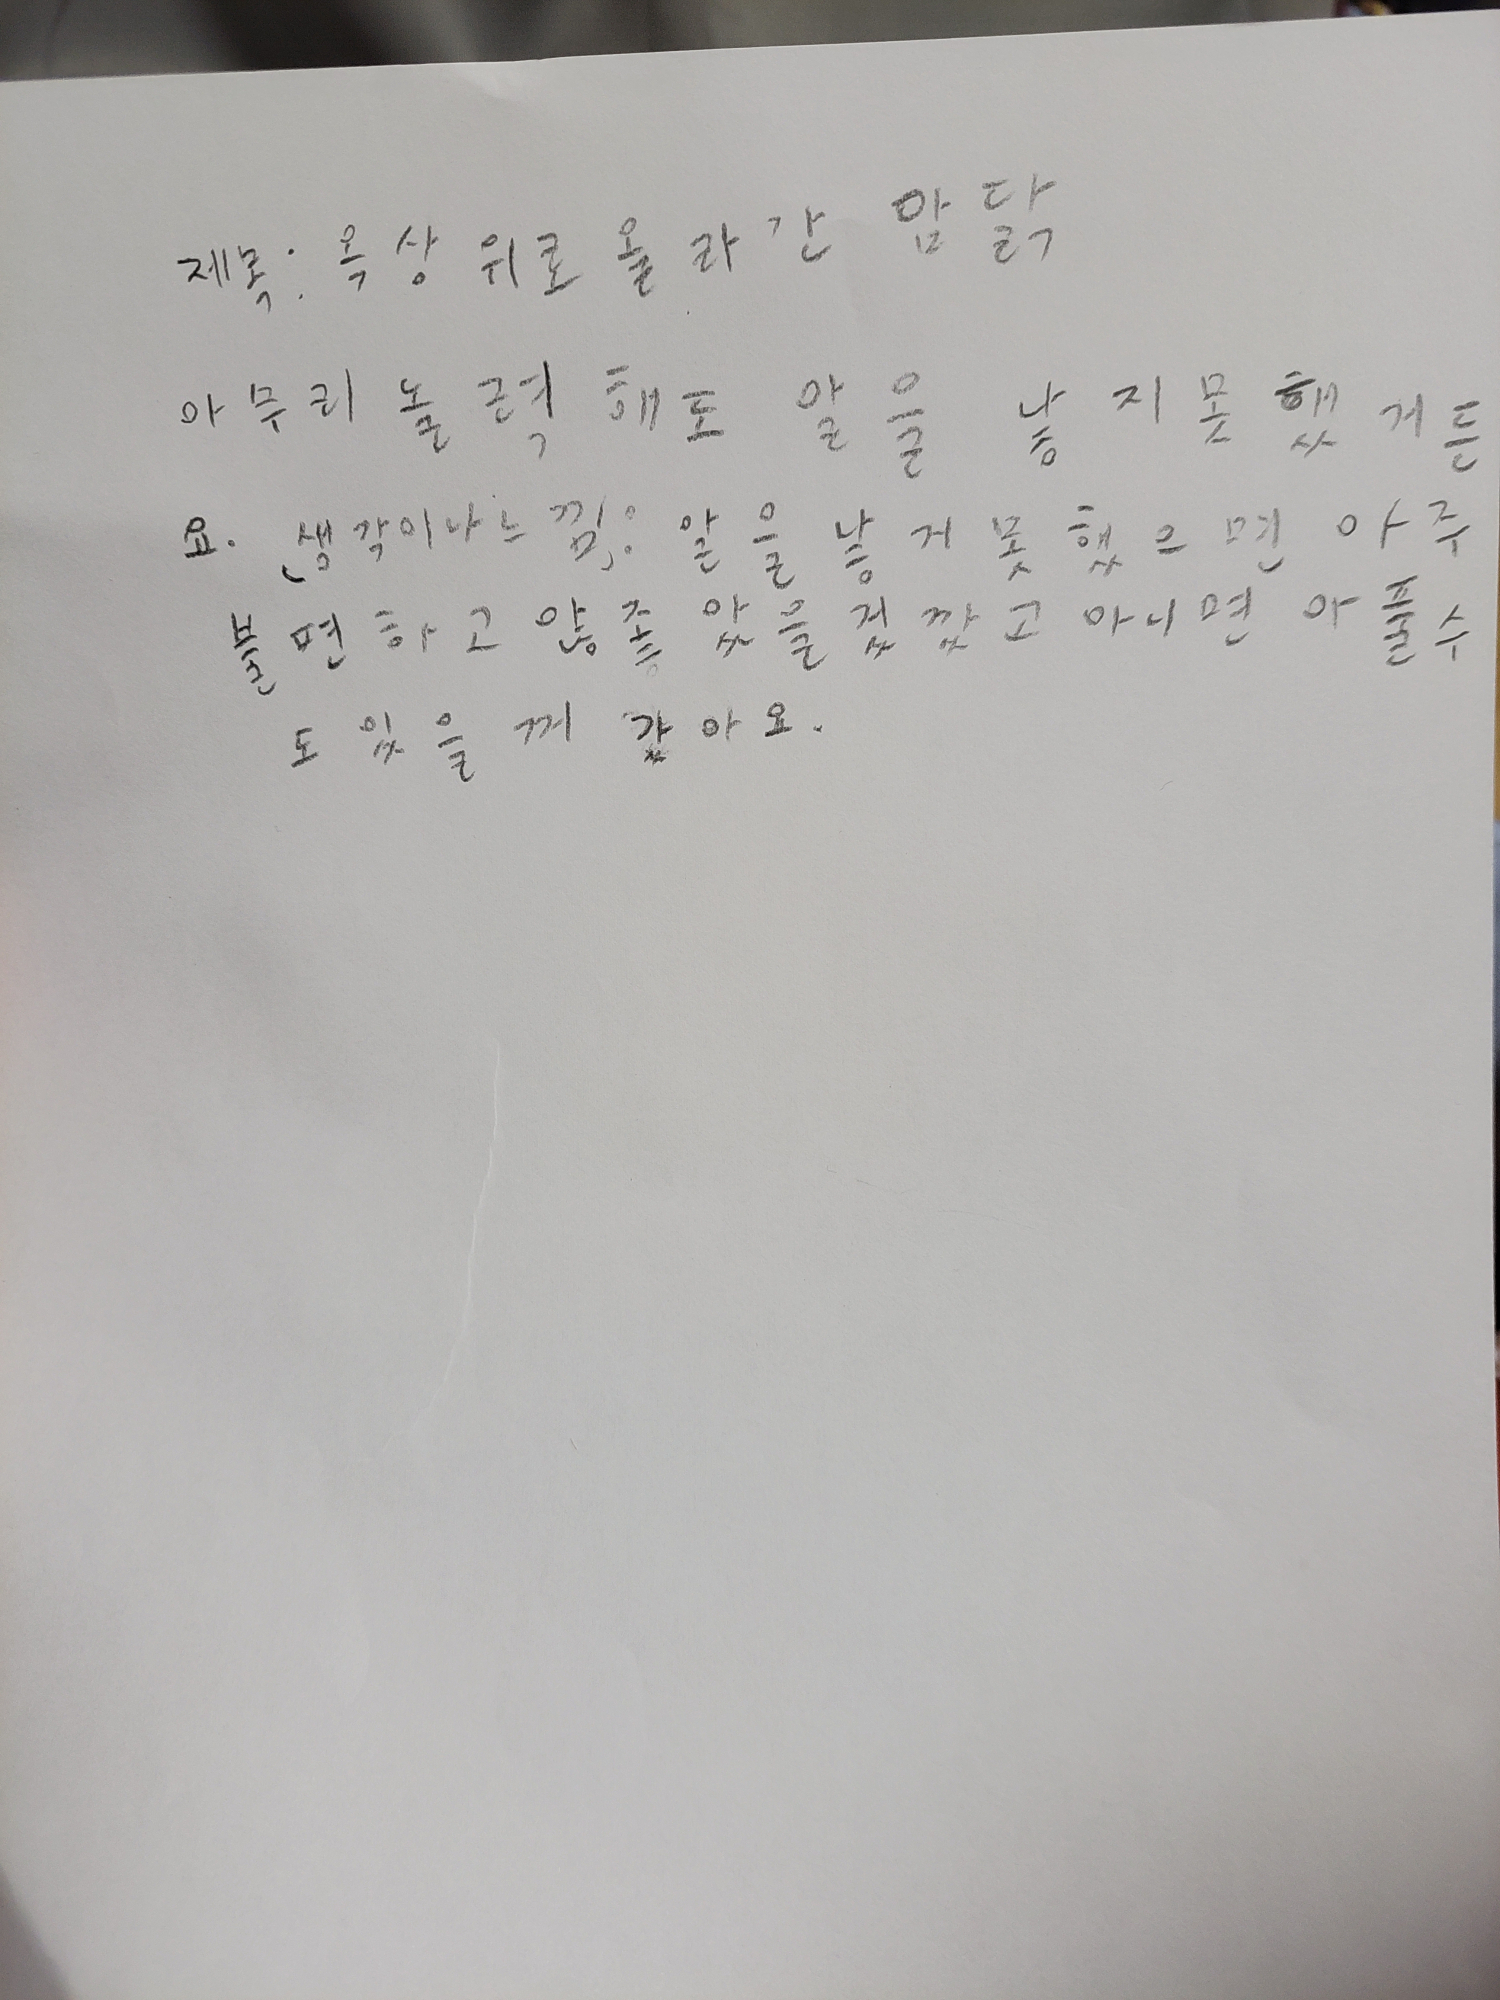 제목: 옥상 위로 올라간 암닭
아무리 놀력해도 알을 낳지못했거든
요. 생각이나느낌: 알을 낳거못했으면 아주
불면하고 않좋았을것같고 아니면 아풀수
도 있을꺼 같아요.